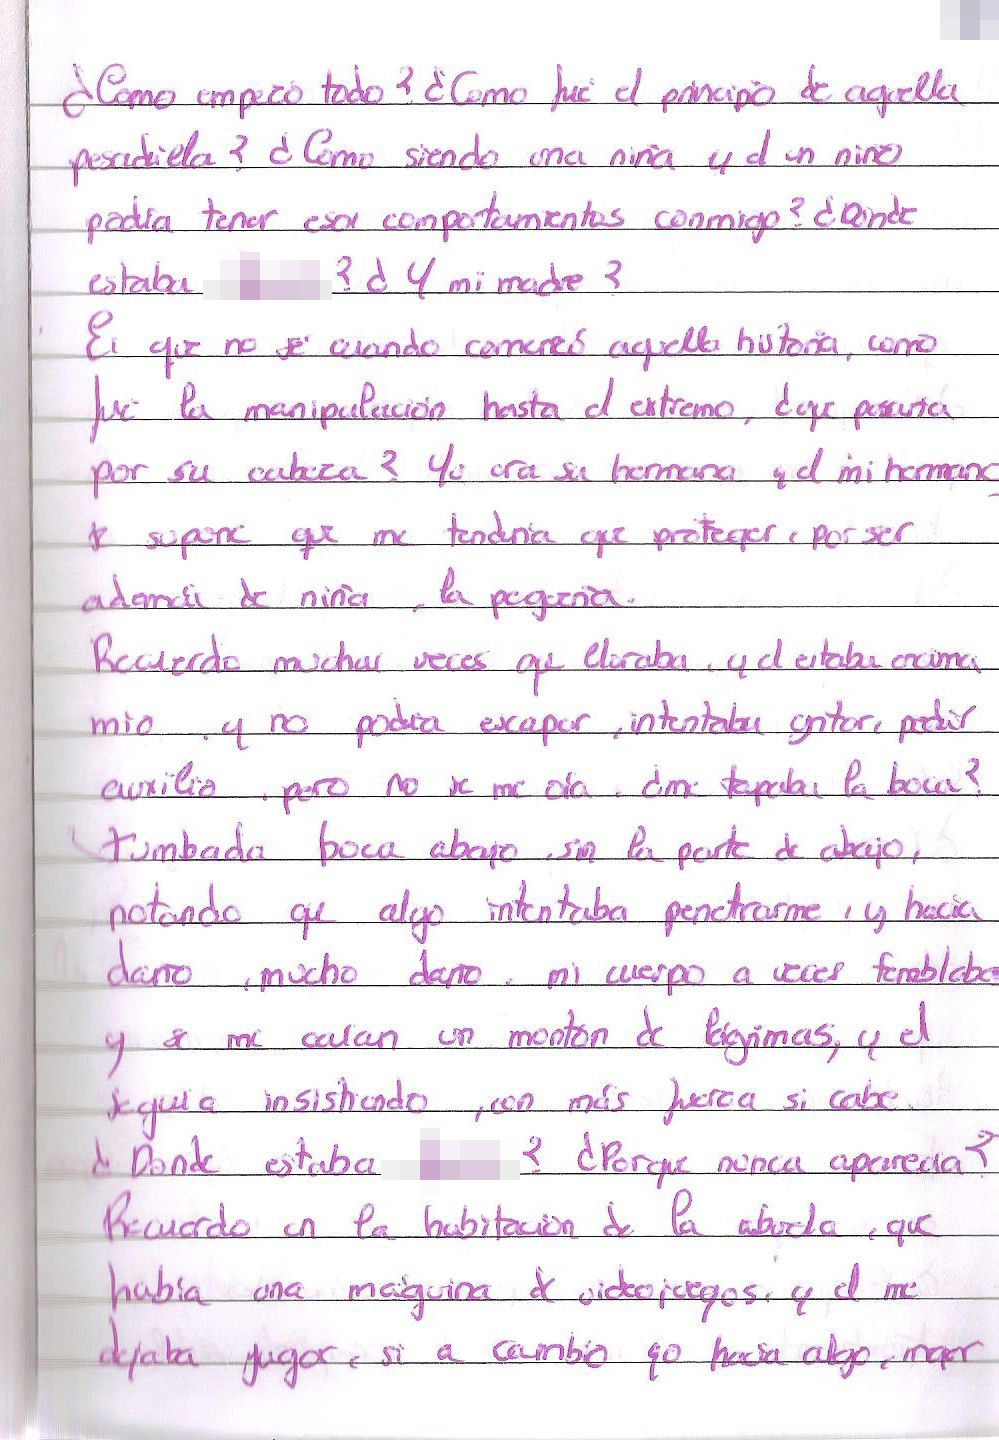 ¿Como empezó todo? ¿Como fué el principio de aquella
pesadiella? ¿Como siendo una niña y el un niño
podia tener esos comportamientos conmigo? ¿Donde
estaba ? ¿Y mi madre?
Es que no sé cuando comenzó aquella historia, como
fué la manipulación hasta el extremo, ¿que pasaria
por su cabeza? Yo era su hermana y el mi hermano
se supone que me tendria que proteger, por ser
además de niña, la pequeña.
Recuerdo muchas veces que lloraba, y el estaba encima
mio, y no podia escapar, intentaba gritar, pedir
auxilio, pero no se me oia. ¿me tapaba la boca?
tumbada boca abajo, sin la parte de abajo,
notando que algo intentaba penetrarme, y hacia
daño, mucho daño. mi cuerpo a veces temblaba
y se me caian un montón de lágrimas, y el
seguia insistiendo, con más fuerza si cabe.
¿Donde estaba ? ¿Porque nunca aparecia?
Recuerdo en la habitación de la abuela, que
había una máquina de videojuegos, y el me
dejaba jugar, si a cambio yo hacia algo, mejor